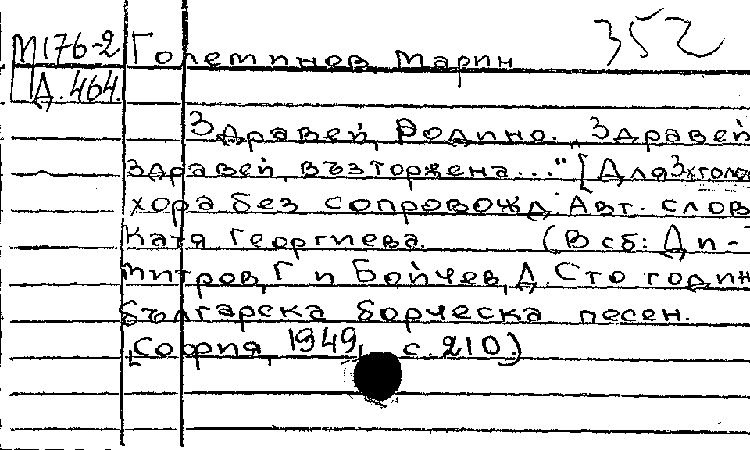 М176-2 Големинов, Марин 352
Д. 464.
Здравей, Родино. „Здравей
здравей, възторжена..." [Для 3хголос
хора без сопровожд. Авт. слов
Катя Георгиева. (В сб: Ди-
митров, Г и Бойчев, Д. Сто годин
българска борческа песен.
[София, 1949, с. 210)